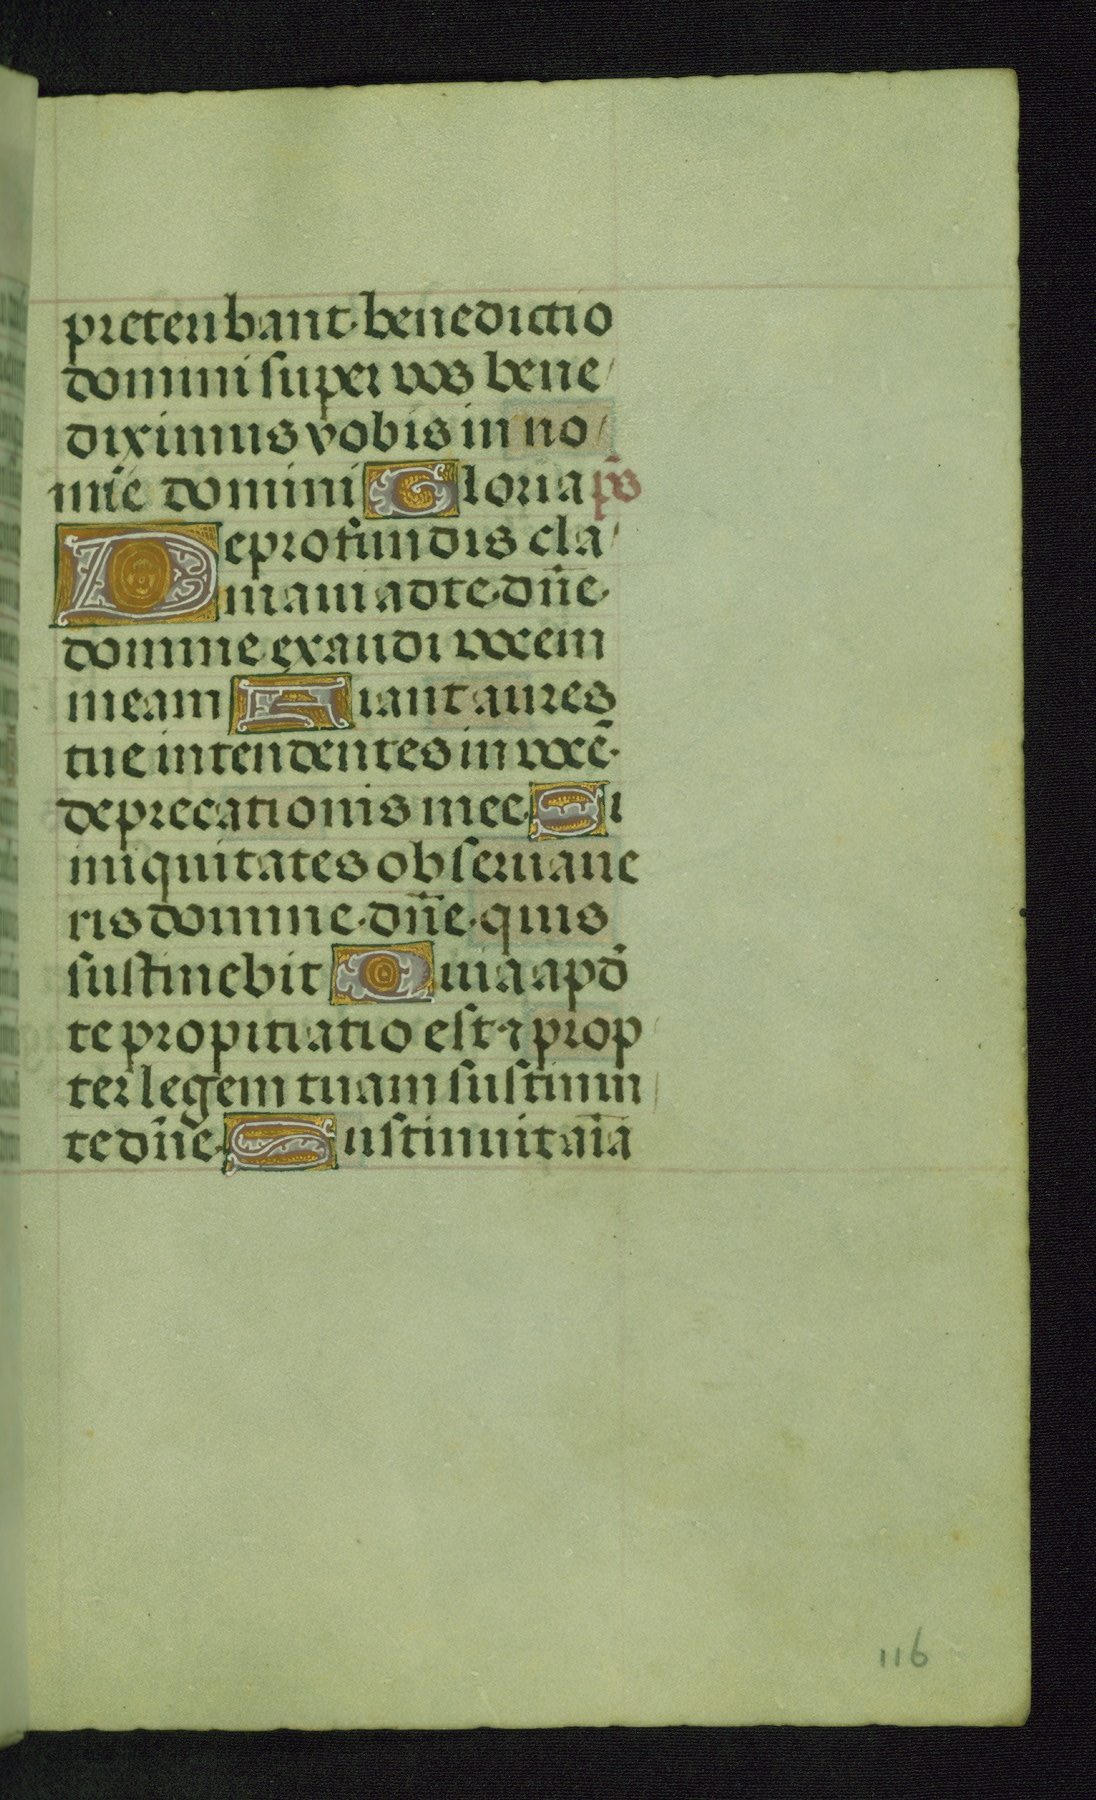 preteribant benedictio
domini super vos bene/
diximus vobis in no/
mīe domini Gloria ps̄
De profundis cla/
maui ad te dn̄e
domine exaudi vocem
meam Fiant aures
tue intendentes in vocē
deprecationis mee Si
iniquitates obseruaue
ris domine dn̄e quis
sustinebit Quia apd̄
te propitiatio est ⁊ prop
ter legem tuam sustinui
te dn̄e Sustinuit aīa
116